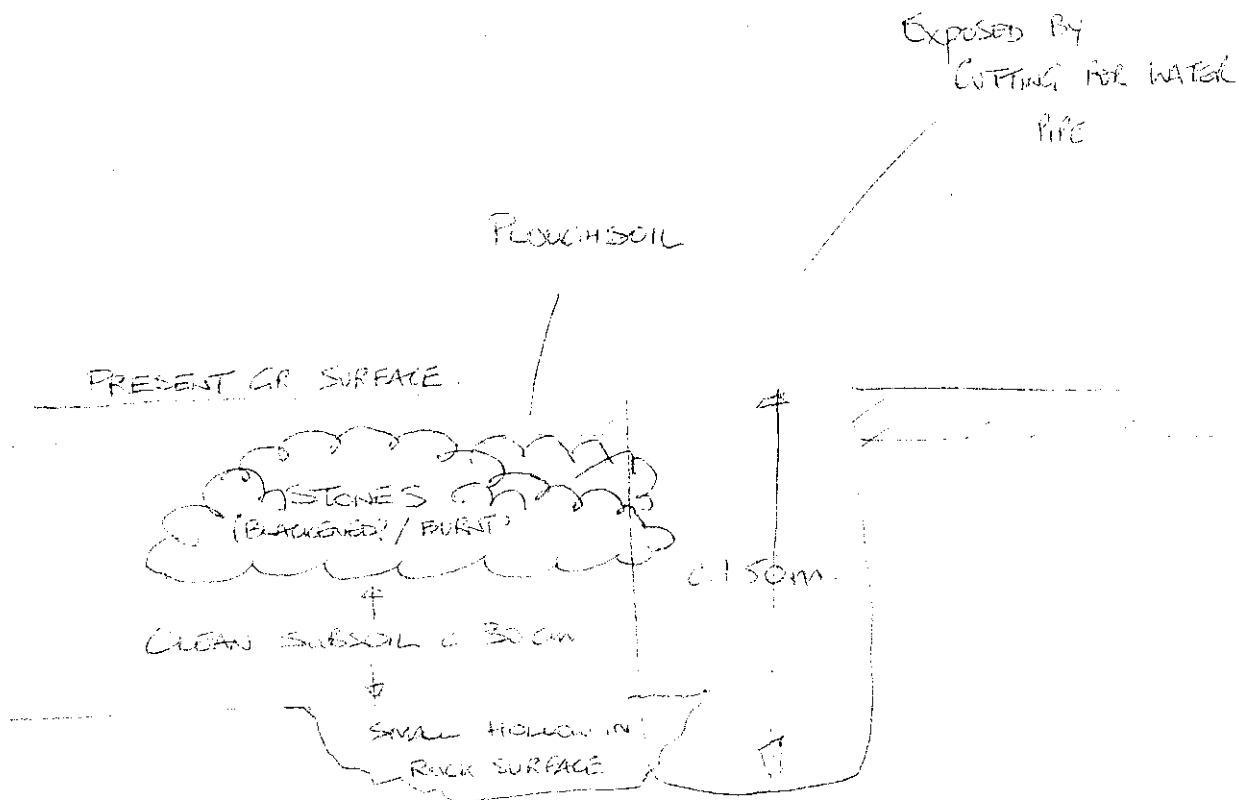 EXPOSED BY
CUTTING FOR WATER
PIPE
PLOUGHSOIL
PRESENT GR SURFACE.
STONES
(BLACKENED?/BURNT)
c. 1 50m.
CLEAN SUBSOIL c 30cm
SMALL HOLLOW IN
ROCK SURFACE